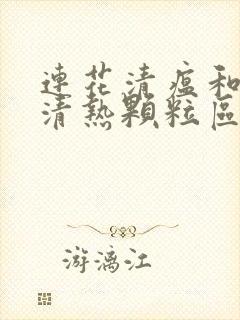 連花清瘟和
清熱顆粒區
游漓江